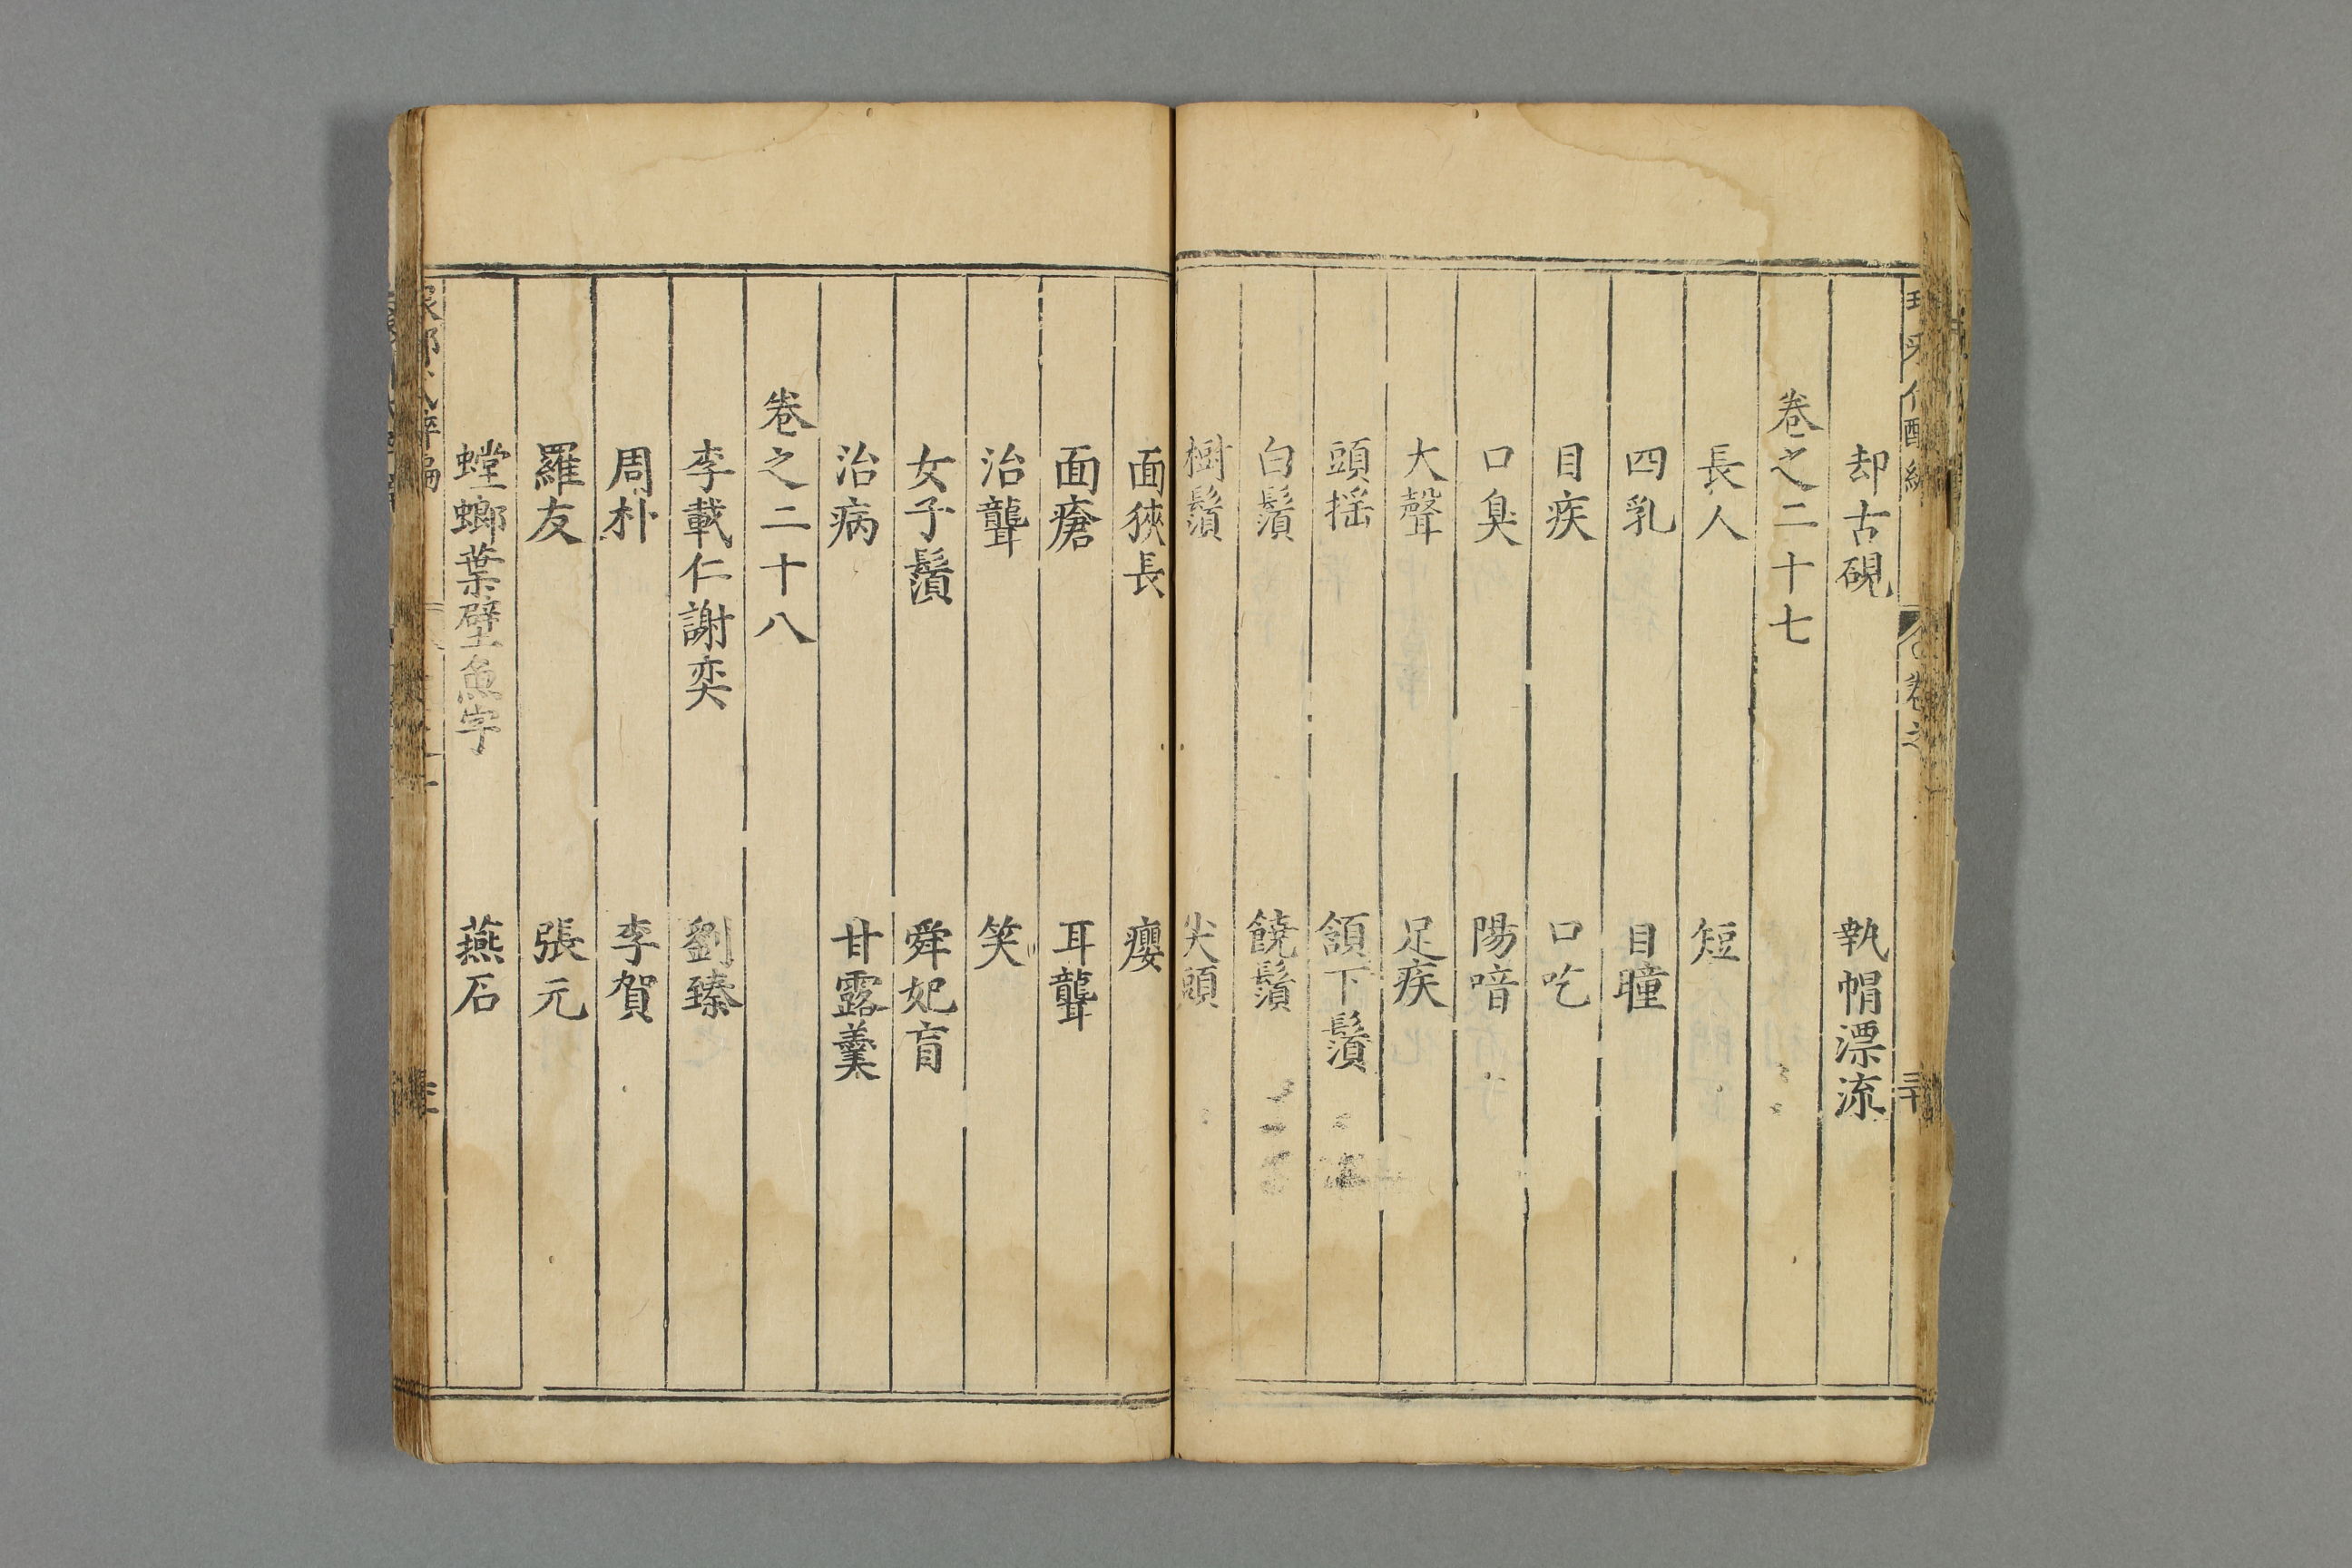 却古硯　執帽漂流
卷之二十七
長人　短
四乳　目瞳
目疾　口吃
口臭　陽喑
大聲　足疾
頭搖　頷下鬚
白鬚　饒鬚
樹鬚　尖頭
面狹長　癭
面瘡　耳聾
治聾　笑
女子鬚　舜妃盲
治病　甘露羹
卷之二十八
李載仁謝奕　劉臻
周朴　李賀
羅友　張元
螳螂葉壁魚字　燕石